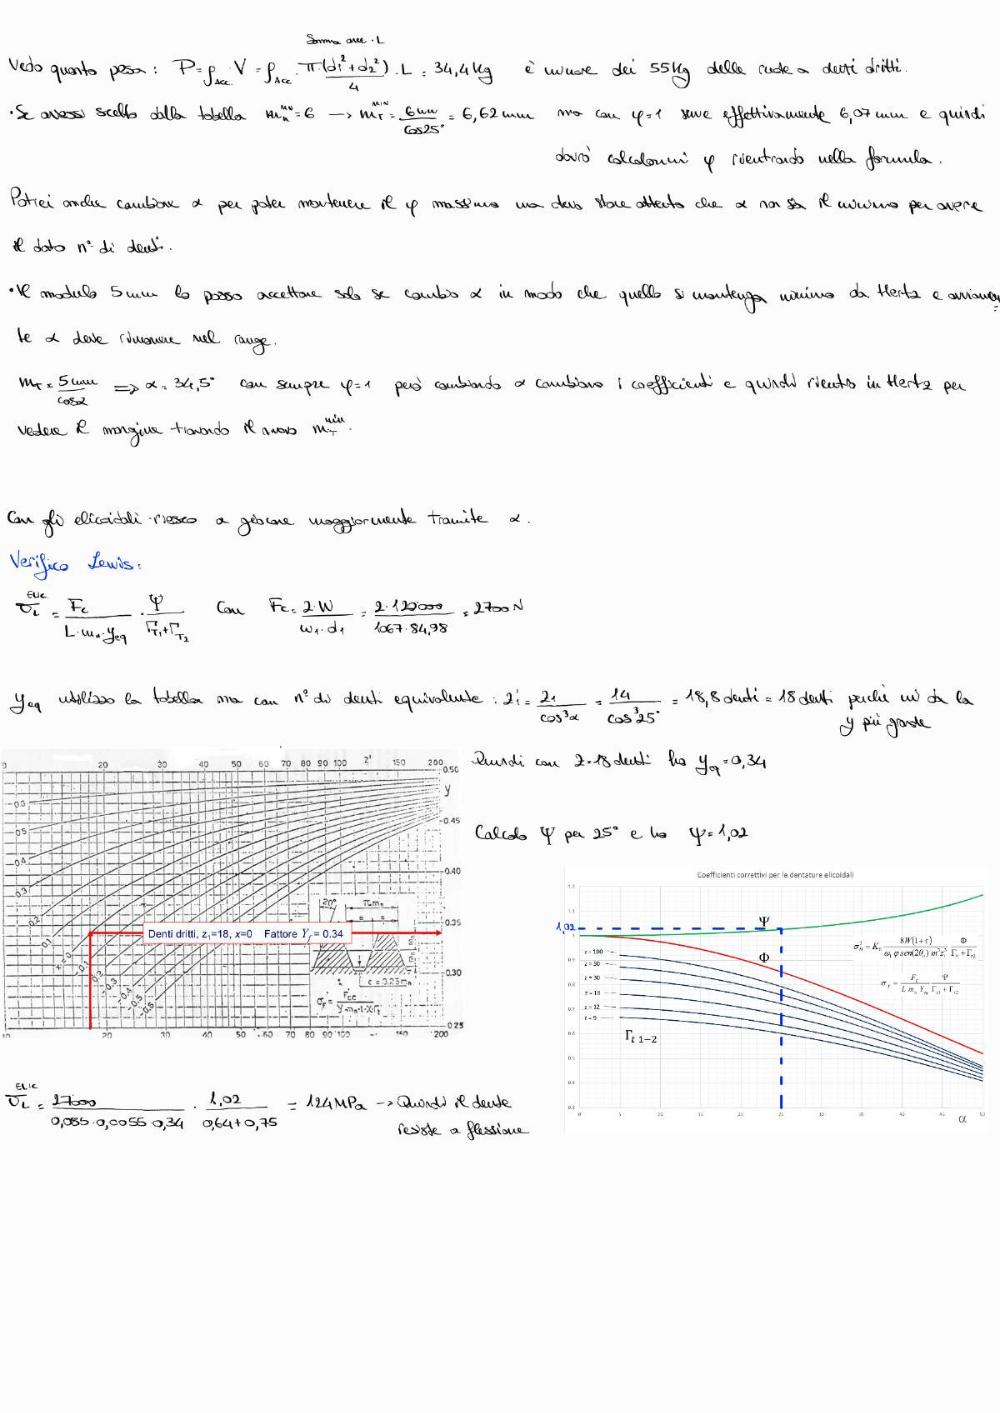 Somma aree · L
Vedo quanto pesa: P = ρ_Acc · V = ρ_Acc · π(d₁²+d₂²)/4 · L = 34,4 kg è minore dei 55 kg delle ruote a denti dritti.
• Se avessi scelto dalla tabella m_n^MIN = 6 → m_T^MIN = 6 mm/cos25° = 6,62 mm ma con φ=1 serve effettivamente 6,07 mm e quindi
dovrò calcolarmi φ rientrando nella formula.
Potrei anche cambiare α per poter mantenere il φ massimo ma devo stare attento che α non sia il minimo per avere
il dato n° di denti.
• Il modulo 5 mm lo posso accettare solo se cambio α in modo che quello si mantenga minimo da Hertz e
te α deve rimanere nel range.
m_T = 5 mm/cosα ⟹ α = 34,5° con sempre φ=1 però cambiando α cambiano i coefficienti e quindi rientro in Hertz per
vedere il margine trovando il nuovo m_T^min.
Con gli elicoidali riesco a giocare maggiormente tramite α.
Verifico Lewis:
σ_L^ELIC = F_c/(L·m_n·y_eq) · Ψ/(Γ_T1+Γ_T2) Con F_c = 2·W/(ω₁·d₁) = 2·120000/(1067·84,98) = 2700 N
y_eq utilizzo la tabella ma con n° di denti equivalente: z₁' = z₁/cos³α = 14/cos³25° = 18,8 denti = 18 denti perché mi da la
y più grande
Quindi con z=18 denti ho y_eq = 0,34
Calcolo Ψ per 25° e ho Ψ = 1,02
20 30 40 50 60 70 80 90 100 z' 150 200
0.50
y
0.45
0.40
0.35
0.30
0.25
0.5
0.4
0.3
0.2
0.1
x=0
-0.1
-0.2
-0.3
-0.4
-0.5
20°
πm_n
c = 0.25m_n
Denti dritti, z₁=18, x=0 Fattore Y_F = 0.34
10 20 30 40 50 60 70 80 90 100 z' 150 200
Coefficienti correttivi per le dentature elicoidali
1,02
Ψ
Φ
z = 100
z = 50
z = 30
z = 18
z = 12
Γ_t 1−2
0 5 10 15 20 25 30 35 40 45 50
α
σ_L^ELIC = 27000/(0,055·0,0055·0,34) · 1,02/(0,64+0,75) = 124 MPa → Quindi il dente
resiste a flessione